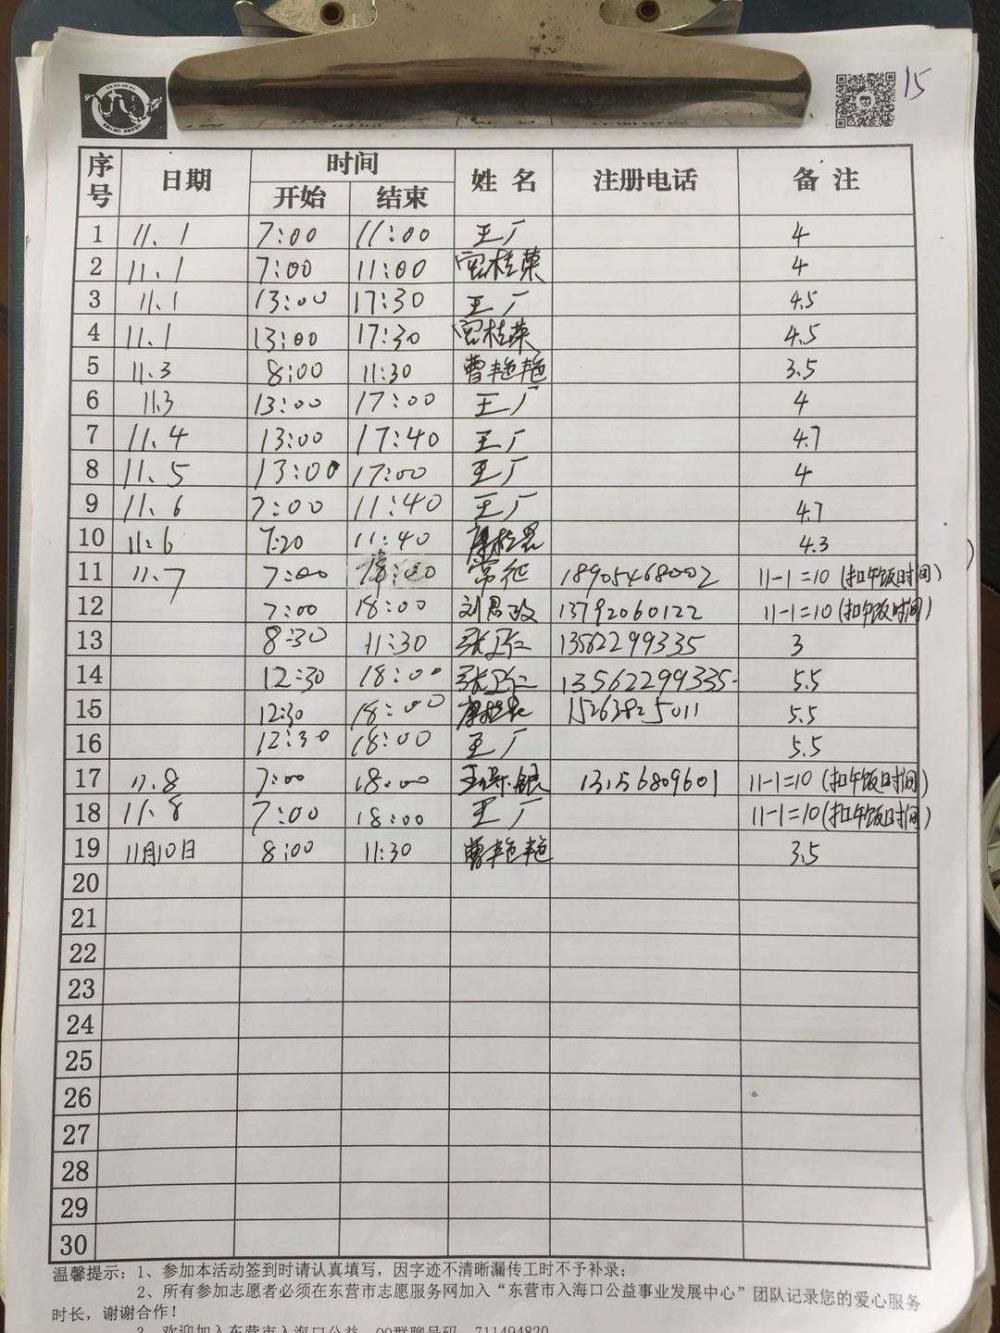 15
序号 日期 时间 姓 名 注册电话 备 注
开始 结束
1 11.1 7:00 11:00 王厂 4
2 11.1 7:00 11:00 宫桂荣 4
3 11.1 13:00 17:30 王厂 4.5
4 11.1 13:00 17:30 宫桂荣 4.5
5 11.3 8:00 11:30 曹艳艳 3.5
6 11.3 13:00 17:00 王厂 4
7 11.4 13:00 17:40 王厂 4.7
8 11.5 13:00 17:00 王厂 4
9 11.6 7:00 11:40 王厂 4.7
10 11.6 7:20 11:40 4.3
11 11.7 7:00 18:00 常征 18905468002 11-1=10(扣午饭时间)
12 7:00 18:00 13792060122 11-1=10(扣午饭时间)
13 8:30 11:30 13562299335 3
14 12:30 18:00 13562299335 5.5
15 12:30 18:00 15263825011 5.5
16 12:30 18:00 王厂 5.5
17 11.8 7:00 18:00 13156809601 11-1=10(扣午饭时间)
18 11.8 7:00 18:00 王厂 11-1=10(扣午饭时间)
19 11月10日 8:00 11:30 曹艳艳 3.5
20
21
22
23
24
25
26
27
28
29
30
温馨提示：1、参加本活动签到时请认真填写，因字迹不清晰漏传工时不予补录；
2、所有参加志愿者必须在东营市志愿服务网加入“东营市入海口公益事业发展中心”团队记录您的爱心服务
时长，谢谢合作！
3、欢迎加入东营市入海口公益，QQ群聊号码：711494820